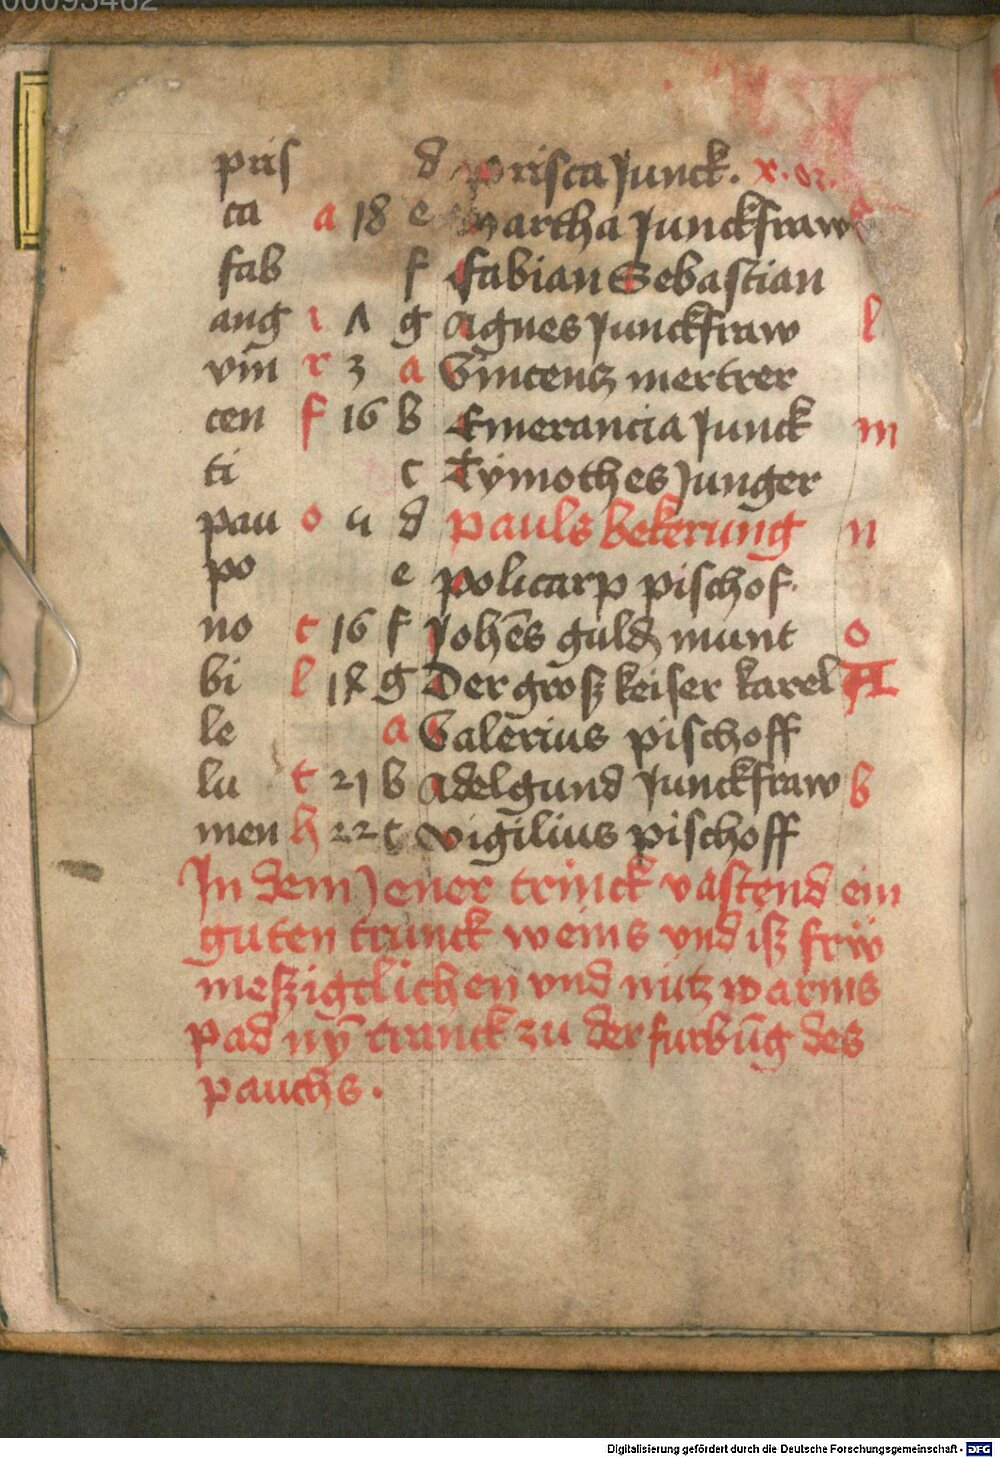 00093462
pris d Prisca Junck. x. or.
ca a 18 e Martha Junckfraw
fab f Fabian Sebastian
ang i Λ g Agnes Junckfraw l
vin r 3 a Vincentz mertrer
cen f 16 b Emerancia Junck m
ti c Tymothes Junger
pau o 4 d Pauls bekerung n
po e policarp pischof.
no c 16 f Johēs guldn munt o
bi l 18 g Der grosz keiser karel A
le a Valerius pischoff
lu t 21 b Adelgund Junckfraw b
men h 22 c Vigilius pischoff
In dem Jener trinck vastend ein
guten trunck weins vnd isz frw
meszigclichen vnd nutz warms
pad ny̅ tranck zu der furbūg des
pauchs.
Digitalisierung gefördert durch die Deutsche Forschungsgemeinschaft - DFG